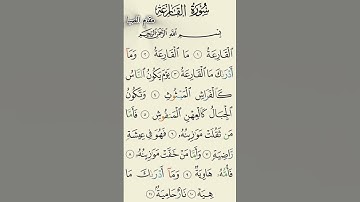 سُورَةُ القَارِعَةِ
مقام الصبا
بِسْمِ اللَّهِ الرَّحْمَٰنِ الرَّحِيمِ
الْقَارِعَةُ ١ مَا الْقَارِعَةُ ٢ وَمَا
أَدْرَاكَ مَا الْقَارِعَةُ ٣ يَوْمَ يَكُونُ النَّاسُ
كَالْفَرَاشِ الْمَبْثُوثِ ٤ وَتَكُونُ
الْجِبَالُ كَالْعِهْنِ الْمَنفُوشِ ٥ فَأَمَّا
مَن ثَقُلَتْ مَوَازِينُهُ ٦ فَهُوَ فِي عِيشَةٍ
رَّاضِيَةٍ ٧ وَأَمَّا مَنْ خَفَّتْ مَوَازِينُهُ ٨
فَأُمُّهُ هَاوِيَةٌ ٩ وَمَا أَدْرَاكَ مَا
هِيَهْ ١٠ نَارٌ حَامِيَةٌ ١١